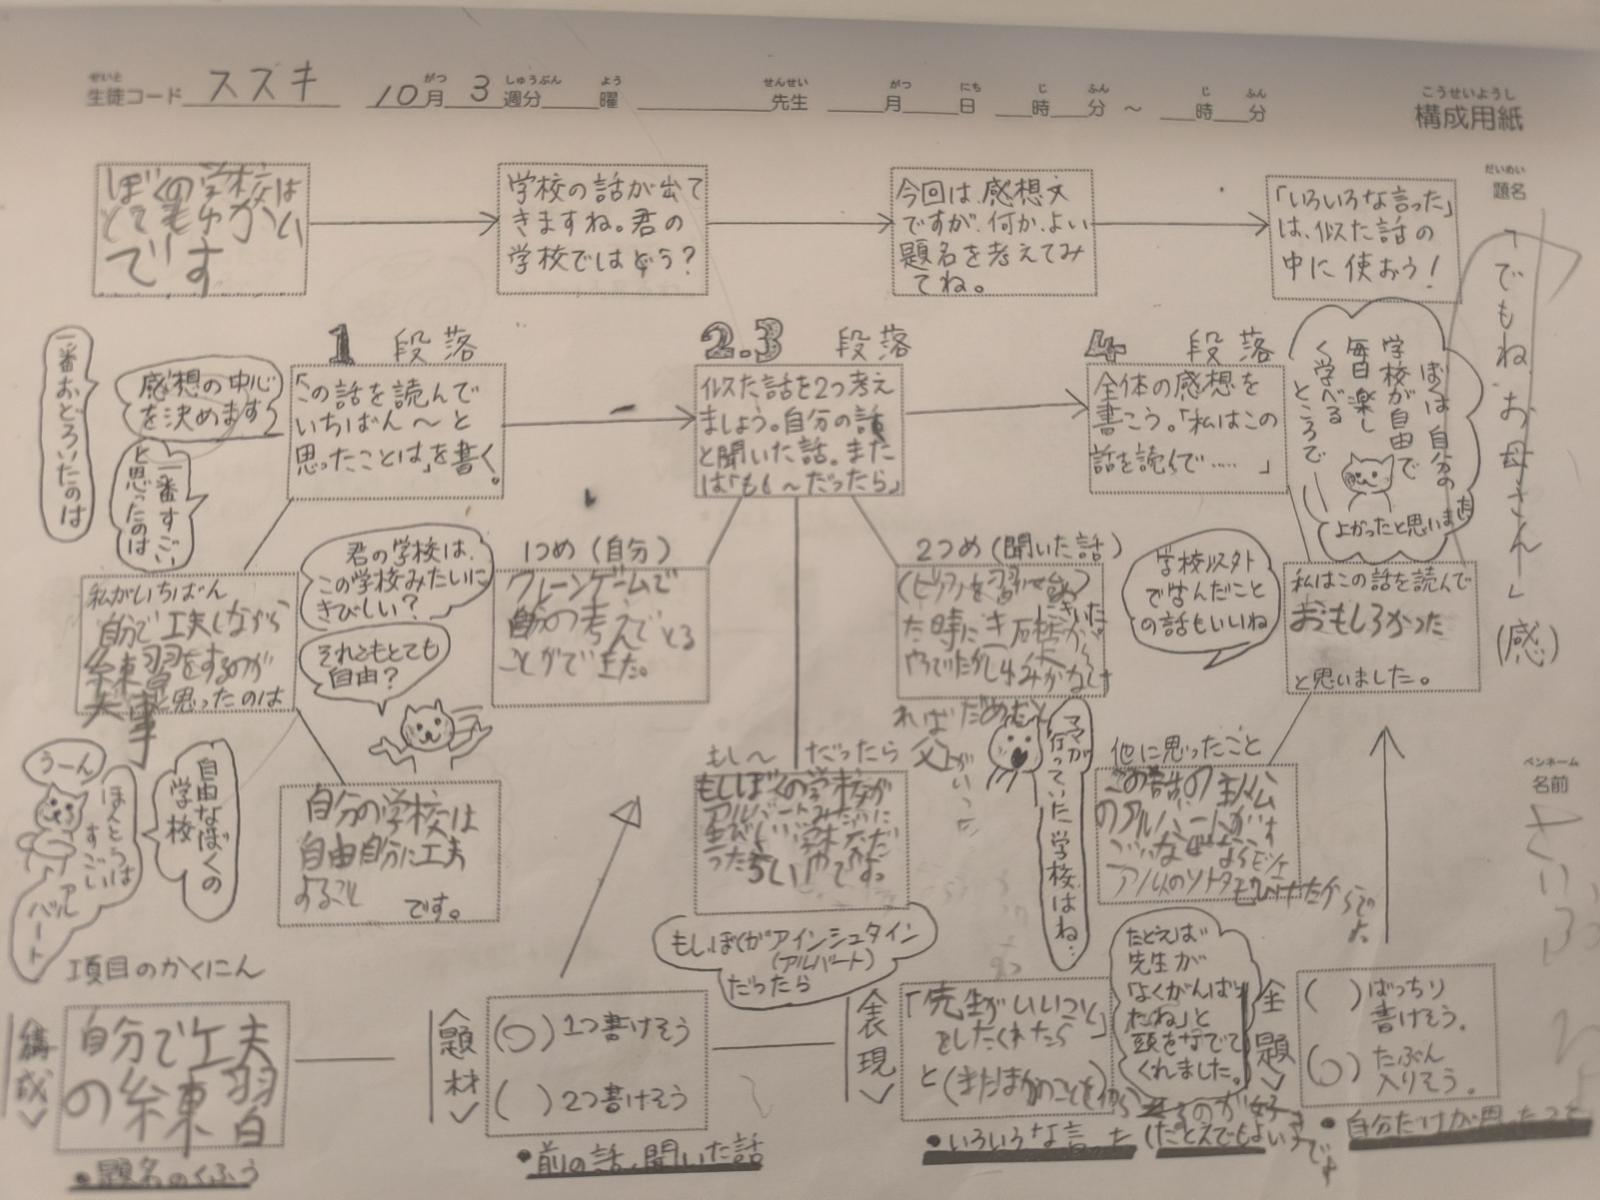 せいと
生徒コード スズキ 10月 3週分 曜 先生 月 日 時 分 ~ 時 分
がつ しゅうぶん よう せんせい がつ にち じ ふん じ ふん
こうせいようし
構成用紙
だいめい
題名
「でもね、お母さん」(感)
ペンネーム
名前
ぼくの学校は
です
学校の話が出て
きますね。君の
学校ではどう?
今回は、感想文
ですが、何か、よい
題名を考えてみ
てね。
「いろいろな言った」
は、似た話の
中に使おう!
1 段落
「この話を読んで
いちばん~と
思ったことは」を書く。
感想の中心
を決めます
一番おどろいたのは
一番すごい
と思ったのは
2.3 段落
似た話を2つ考え
ましょう。自分の話
と聞いた話。また
は「もし~だったら」
4 段落
全体の感想を
書こう。「私はこの
話を読んで……」
ぼくは自分の
学校が自由で
毎日楽し
く学べる
ところで
よかったと思いました
私がいちばん
自分で工夫しながら
練習をするのが
大事
と思ったのは
君の学校は、
この学校みたいに
きびしい?
それともとても
自由?
1つめ(自分)
クレーンゲームで
自分の考えでとる
ことができた。
2つめ(聞いた話)
学校以外
で学んだこと
の話もいいね
私はこの話を読んで
おもしろかった
と思いました。
うーん
ほんとうは
すごい
アルバート
自由なぼくの
学校
自分の学校は
自由自分に工夫
すること
です。
もし~ だったら
もしぼくの学校が
アルバートみたいに
もしぼくがアインシュタイン
(アルバート)
だったら
ママが
行っていた学校はね…
他に思ったこと
この話の主人公
のアルバートが
項目のかくにん
<構成>
自分で工夫
の練習
・題名のくふう
<題材>
(○)1つ書けそう
( )2つ書けそう
・前の話、聞いた話
<表現>
「先生がいいこと
をしたくれたら」
たとえば
先生が
「よくがんばっ
たね」と
頭をなでて
くれました。
・いろいろな言った
(たとえでもよい)
<主題>
( )ばっちり
書けそう。
(○)たぶん
入りそう。
・自分だけが思ったこと